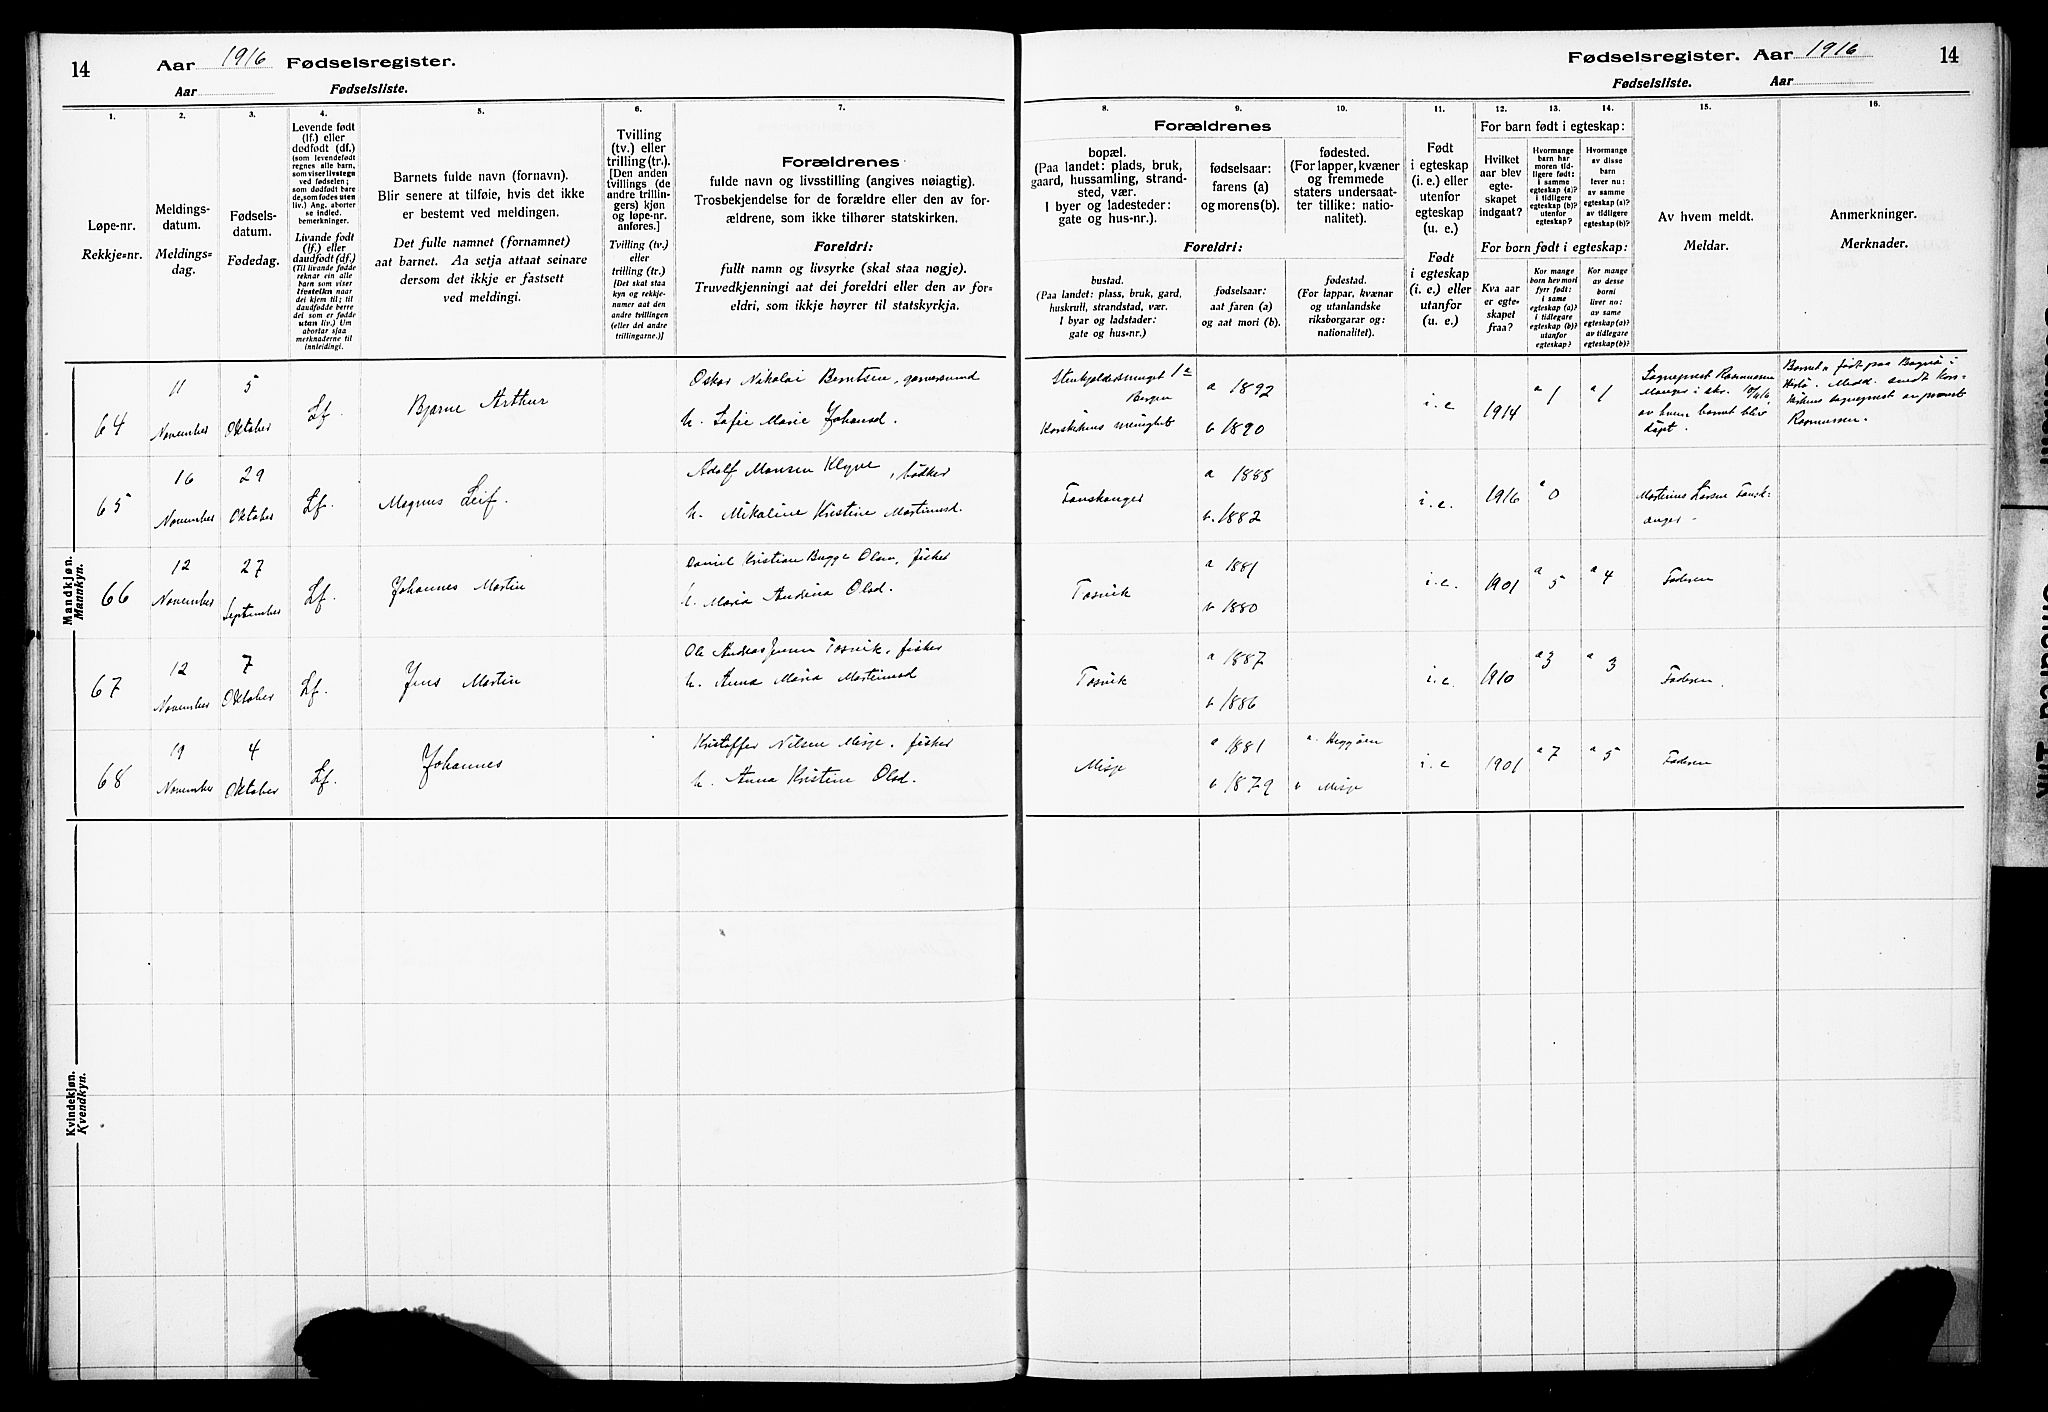 14
Aar 1916 Fødselsregister.
Aar Fødselsliste.
1.
2.
3.
4.
5.
6.
7.
Løpe-nr.
Rekkje=nr.
Meldings-
datum.
Meldings=
dag.
Fødsels-
datum.
Fødedag.
Levende født
(lf.) eller
dødfødt (df.)
(som levendefødt
regnes alle barn,
som viser livstegn
ved fødselen;
som dødfødt bare
de, som fødes uten
liv.) Ang. aborter
se indled.
bemerkninger.
Livande født
(lf.) eller
daudfødt (df.)
(Til livande fødde
reknar ein alle
barn som viser
livsteikn naar
dei kjem til; til
daudfødde berre
dei som er fødde
utan liv.) Um
abortar sjaa
merknaderne til
innleidingi.
Barnets fulde navn (fornavn).
Blir senere at tilføie, hvis det ikke
er bestemt ved meldingen.
Det fulle namnet (fornamnet)
aat barnet. Aa setja attaat seinare
dersom det ikkje er fastsett
ved meldingi.
Tvilling
(tv.) eller
trilling (tr.).
[Den anden
tvillings (de
andre trillin-
gers) kjøn
og løpe-nr.
anføres.]
Tvilling (tv.)
eller
trilling (tr.)
[Det skal staa
kyn og rekkje-
numer aat den
andre tvillingen
(eller dei andre
trillingarne.)]
Forældrenes
fulde navn og livsstilling (angives nøiagtig).
Trosbekjendelse for de forældre eller den av for-
ældrene, som ikke tilhører statskirken.
Foreldri:
fullt namn og livsyrke (skal staa nøgje).
Truvedkjenningi aat dei foreldri eller den av for-
eldri, som ikkje høyrer til statskyrkja.
Mandkjøn.
Mannkyn.
64
11
November
5
Oktober
Lf.
Bjarne Arthur
Oskar Nikolai Berntsen, garversvend
h. Sofie Marie Johansd.
65
16
November
29
Oktober
Lf.
Magnus Leif.
Adolf Monsen Klyve, bødker
h. Mikaline Kristine Martinusd.
66
12
November
27
September
Lf.
Johannes Martin
Daniel Kristian Bugge Olsen, fisker
h. Maria Andrina Olsd.
67
12
November
7
Oktober
Lf.
Jens Martin
Ole Andreas Jensen Tosvik, fisker
h. Anna Maria Martinusd
68
19
November
4
Oktober
Lf.
Johannes
Kristoffer Nilsen Misje, fisker
h. Anna Kristine Olsd.
Kvindekjøn.
Kvendkyn.
Fødselsregister. Aar 1916
14
Fødselsliste. Aar
8.
9.
10.
11.
12.
13.
14.
15.
16.
Forældrenes
bopæl.
(Paa landet: plads, bruk,
gaard, hussamling, strand-
sted, vær.
I byer og ladesteder:
gate og hus-nr.).
fødselsaar:
farens (a)
og morens (b).
fødested.
(For lapper, kvæner
og fremmede
staters undersaat-
ter tillike: natio-
nalitet).
Foreldri:
bustad.
(Paa landet: plass, bruk, gard,
huskrull, strandstad, vær.
I byar og ladstader:
gate og hus=nr.)
fødselsaar:
aat faren (a)
og aat mori (b).
fødestad.
(For lappar, kvænar
og utanlandske
riksborgarar og:
nationalitet).
Født
i egteskap
(i. e.) eller
utenfor
egteskap
(u. e.)
Født
i egteskap
(i. e.) eller
utanfor
(u. e.)
For barn født i egteskap:
Hvilket
aar blev
egte-
skapet
indgaat?
Hvormange
barn har
moren tid-
ligere født:
i samme
egteskap (a)?
i tidligere
egteskap (b)?
utenfor
egteskap?
Hvormange
av disse
barn
lever nu:
av samme
egteskap (a)?
av tidligere
egteskap (b)?
For born født i egteskap:
Kva aar
er egte-
skapet
fraa?
Kor mange
born hev mori
fyrr født:
i same
egteskap (a)?
i tidlegare
egteskap (b)?
utanfor
egteskap?
Kor mange
av desse
borni
liver no:
av same
egteskap (a)?
av tidlegare
egteskap (b)?
Av hvem meldt.
Meldar.
Anmerkninger.
Merknader.
Bergen
Korskirkens menighet
a 1892
b 1890
i.e
1914
a 1
a 1
Sogneprest Rasmussen
Manger i skr.
av hvem barnet blev
døpt.
Barnet er født paa Bognø i
Herlø. Medd. sendt Kors-
kirkens sogneprest av prost
Rasmussen.
Tonskanger
a 1888
b. 1882
i.e.
1916
a 0
Martinus Larsen Tonsk-
anger.
Tosvik
a 1881
b 1880
i.e.
1901
a 5
a 4
Faderen
Tosvik
a 1887
b 1886
i.e.
1910
a 3
a 3
Faderen.
Misje
a 1881
b 1879
a. Heggøen
b Misje
i.e
1901
a 7
a 5
Faderen